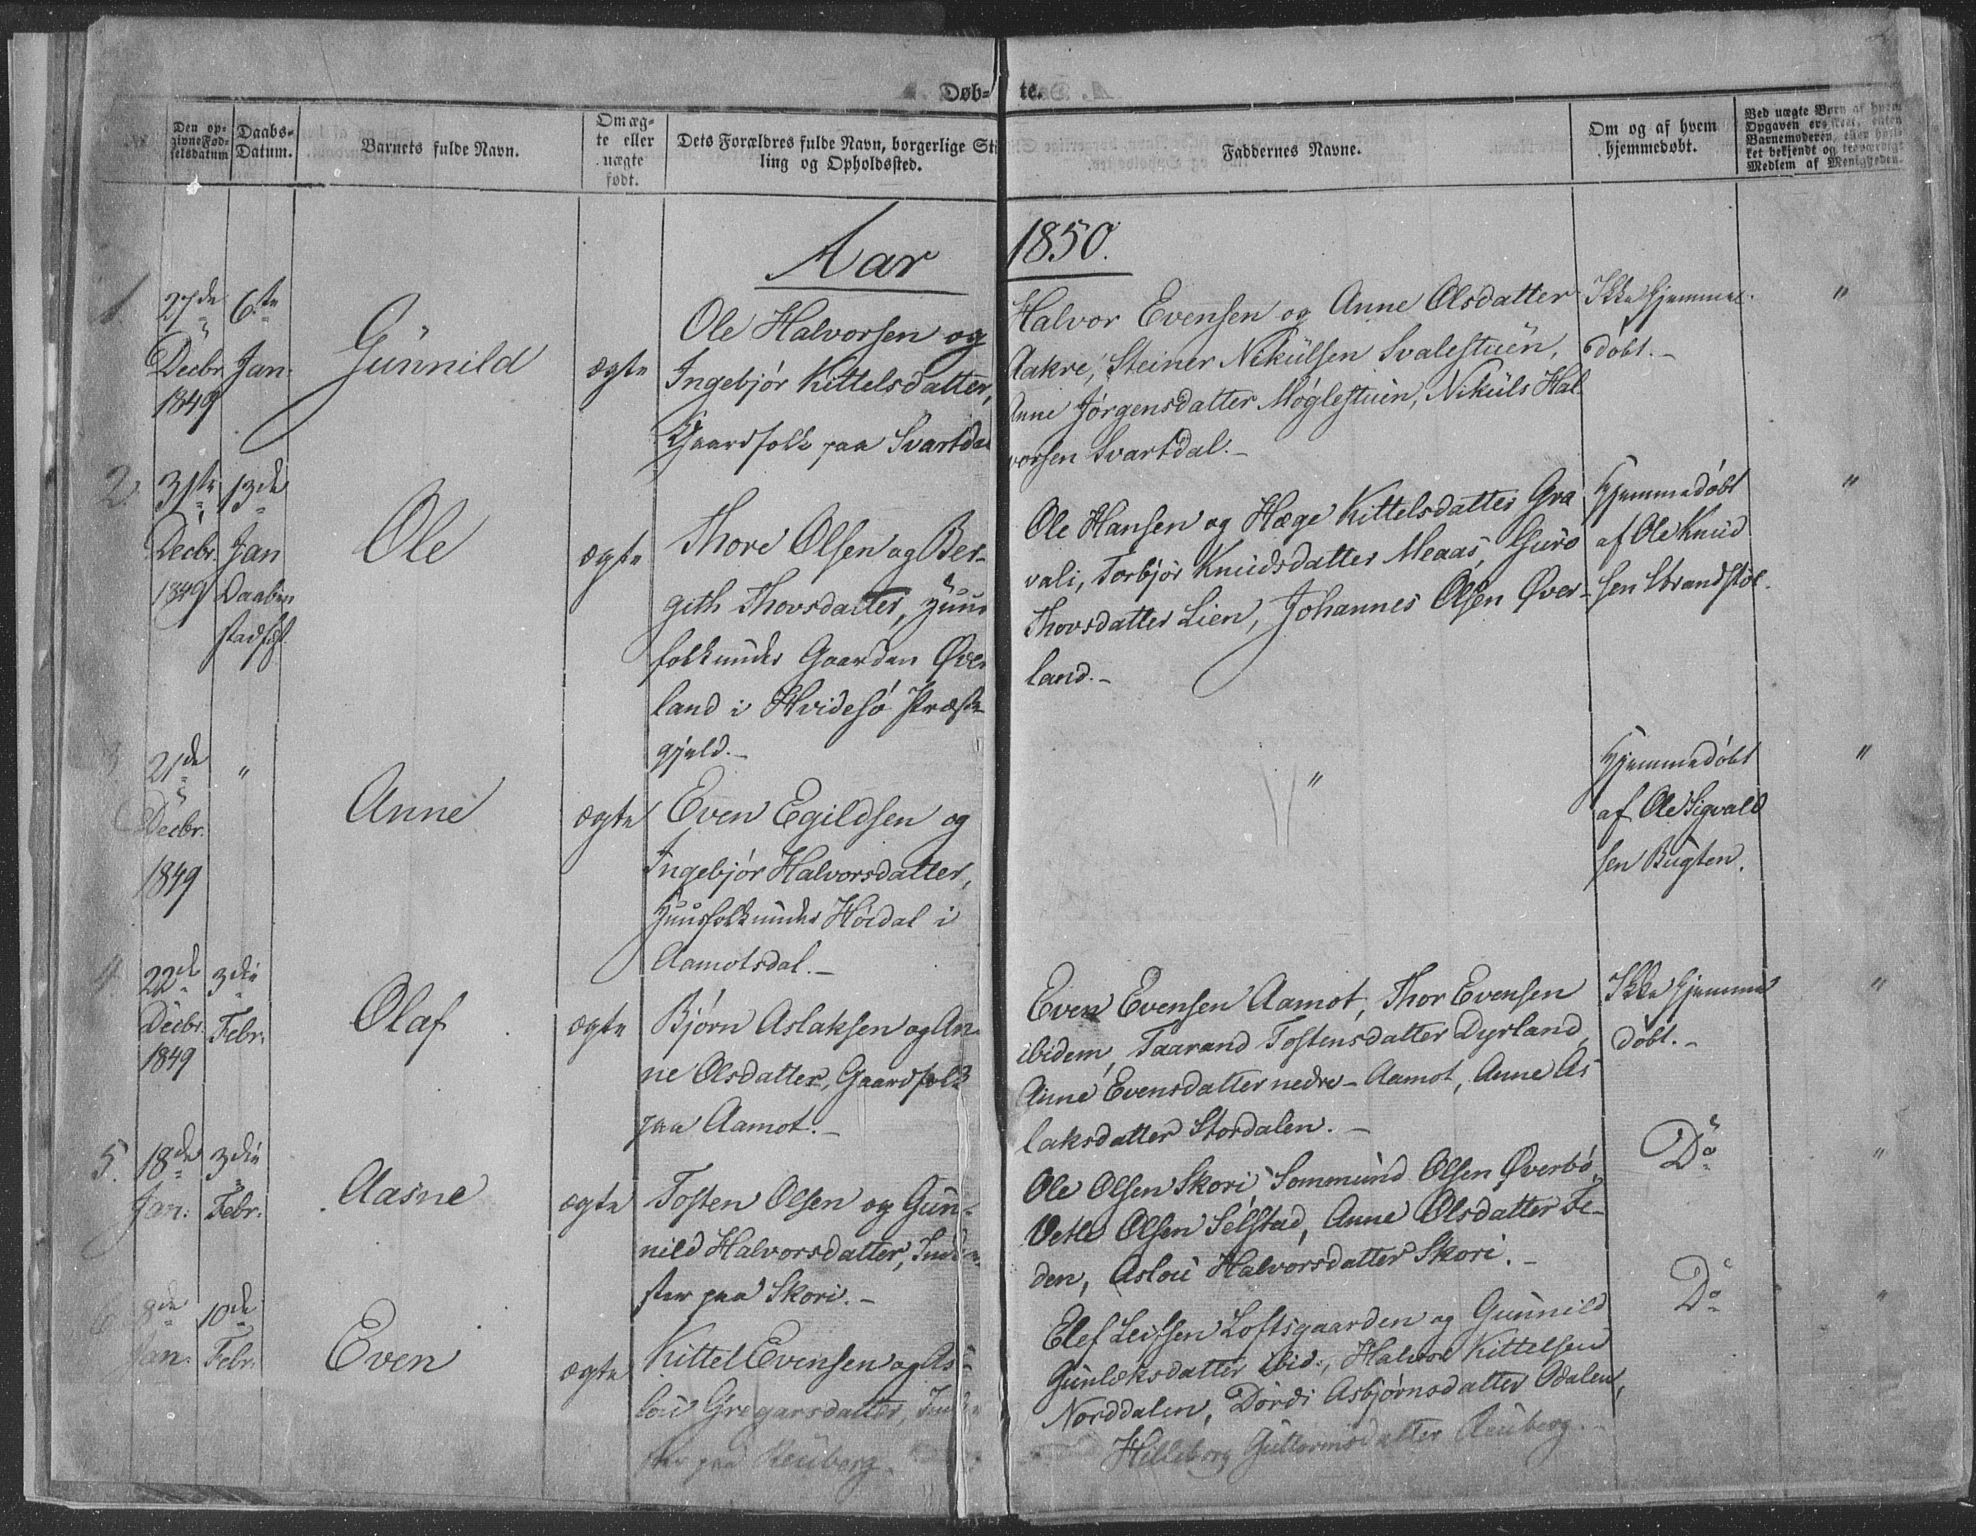 Døb-
te.
Den op-
givne Fød-
selsdatum
Daabs-
Datum.
Barnets fulde Navn.
Om æg-
te eller
uægte
født.
Dets Forældres fulde Navn, borgerlige Sti
ling og Opholdssted.
Faddernes Navne.
Om og af hvem
hjemmedøbt.
Ved uægte Børn af hvem
Opgaven er skeet, enten
Barnemoderen, eller hvil-
ket bekjendt og troværdigt
Medlem af Menigheden.
Aar 1850.
1.
27de
Decbr.
1849
6te
Jan.
Gunnild
ægte
Ole Halvorsen og
Ingebjør Kittelsdatter,
Gaardfolk paa Svartda
Halvor Evensen og Anne Olsdatter
Aakre, Steiner Nikulsen Svalestuen,
Anne Jørgensdatter Møglestuen, Nikuls Hal
vorsen Svartdal.-
Ikke hjemme-
døbt.-
"
2.
31te
Decbr.
1849
13de
Jan
Daaben
stadfst.
Ole
ægte
Thore Olsen og Ber-
gith Thovsdatter, Huus
folk under Gaarden Øve
land i Hvidesø Præste
gjeld.-
Ole Hansen og Hæge Kittelsdatter Gra
vali, Torbjør Knudsdatter Meaas Guro
Thovsdatter Lien, Johannes Olsen Øver-
land.-
Hjemmedøbt
af Ole Knud
sen Strandstøl.
"
3.
21de
Decbr.
1849
"
Anne
ægte
Even Egildsen og
Ingebjør Halvorsdatter,
Huusfolk under Høidal i
Aamotsdal.-
"
Hjemmedøbt
af Ole Sigvald
sen Bugten.
"
4.
22de
Decbr.
1849
3die
Febr.
Olaf
ægte
Bjørn Aslaksen og An-
ne Olsdatter, Gaardfolk
paa Aamot.-
Even Evensen Aamot, Thor Evensen
ibidem, Taarand Tostensdatter Dyrland,
Anne Evensdatter nedre-Aamot, Anne As
laksdatter Stordalen.-
Ikke hjemme
døbt.-
"
5.
18de
Jan.
3die
Febr.
Aasne
ægte
Tosten Olsen og Gun-
nild Halvorsdatter, Inde
ster paa Skori.-
Ole Olsen Skori Sommund Olsen Øverbø,
Vetle Olsen Selstad, Anne Olsdatter Te-
den, Aslou Halvorsdatter Skori.-
Do
"
6
8de
Jan.
10de
Febr.
Even
ægte
Kittel Evensen og As
lou Gregarsdatter, Inde
ster paa Reuberg.
Elef Leifsen Loftsgaarden og Gunnild
Gunleksdatter ibid., Halvor Kittelsen
Norddalen, Dordi Asbjørnsdatter Odalen,
Hilleborg Guttormsdatter Reuberg.-
Do
"